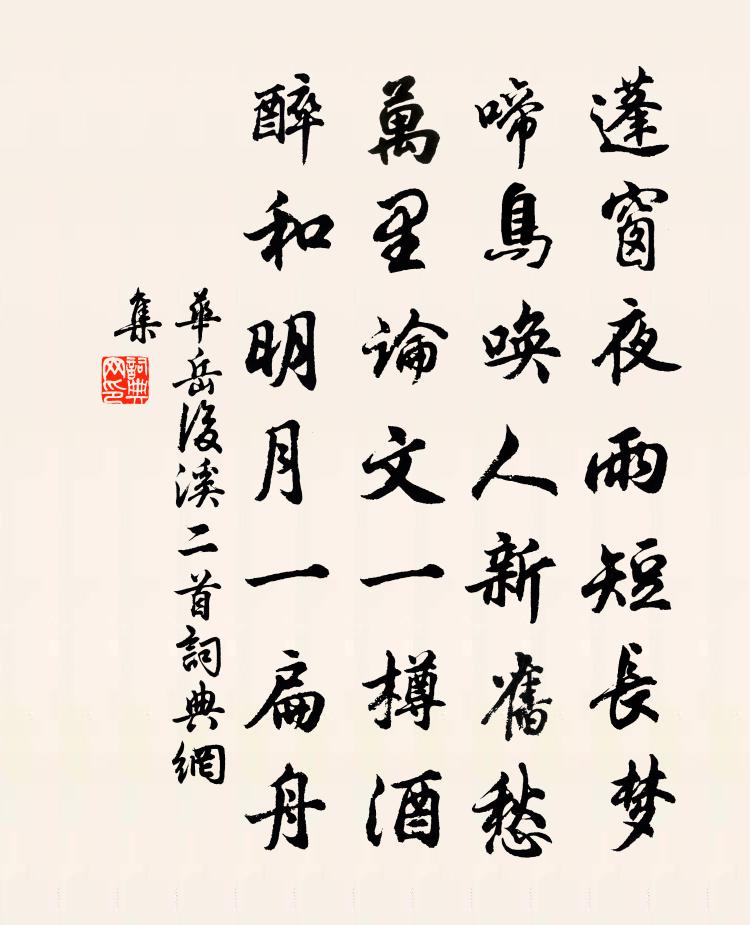 蓬窗夜雨短長梦
啼鳥喚人新舊愁
萬里論文一樽酒
醉和明月一扁舟
華岳後溪二首詞典網
集
詞典网印